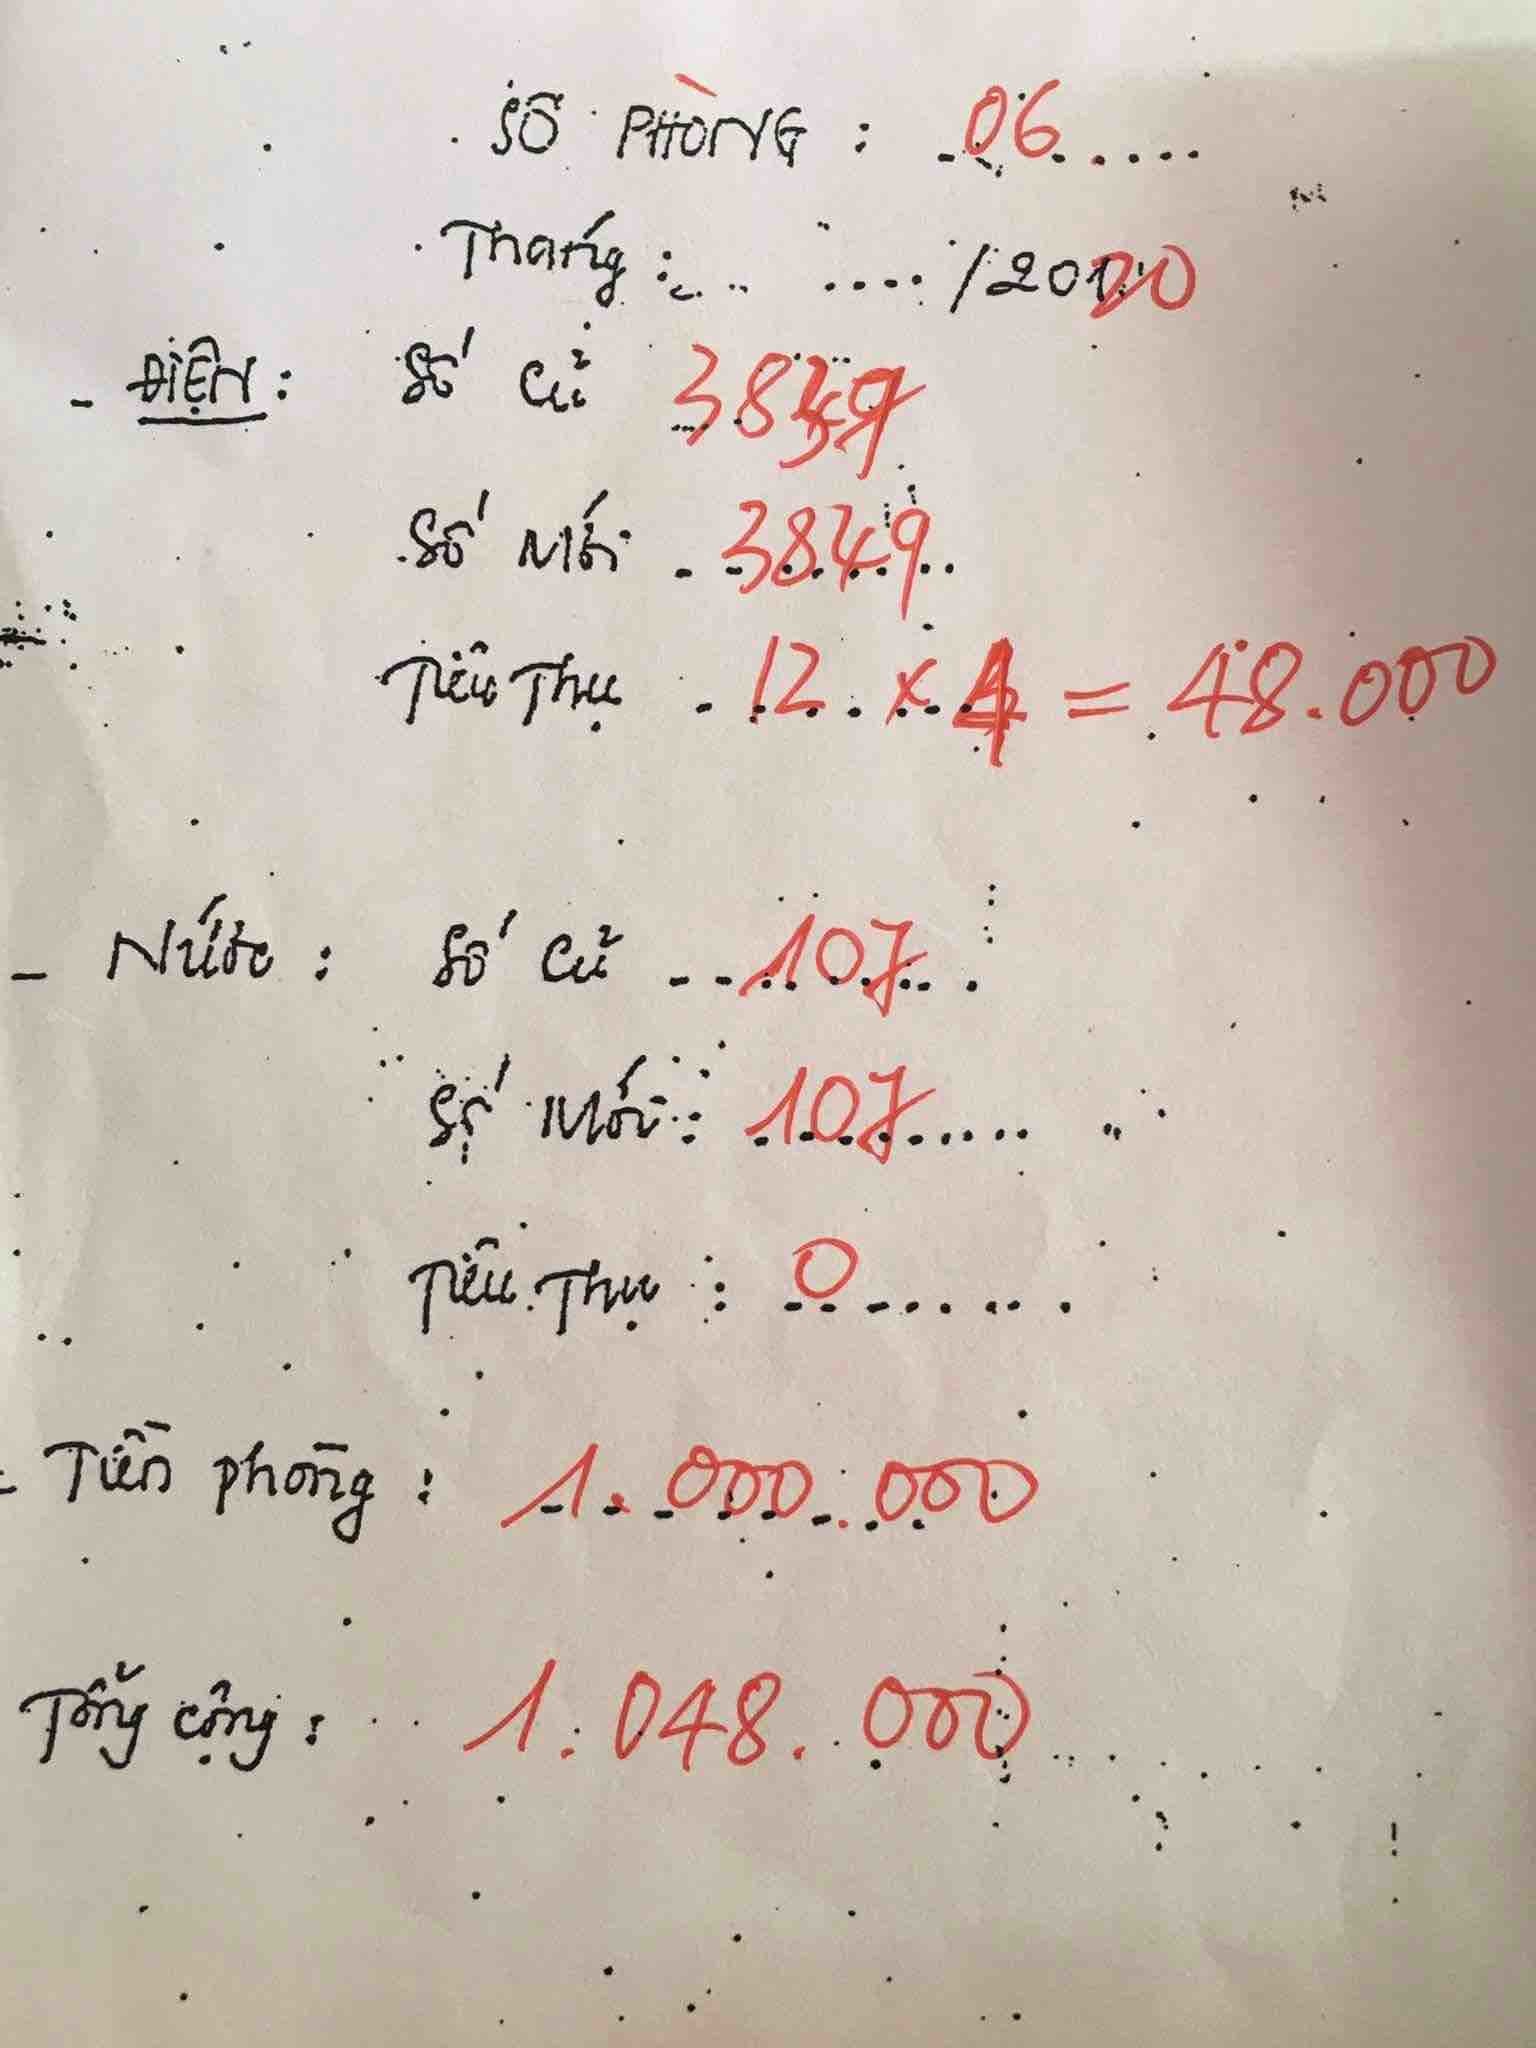 SỐ PHÒNG : 06
Tháng : /2020
- ĐIỆN : Số cũ 3837
Số mới 3849
Tiêu Thụ 12 x 4 = 48.000
- Nước : Số cũ 107
Số mới : 107
Tiêu Thụ : 0
- Tiền phòng : 1.000.000
Tổng cộng : 1.048.000